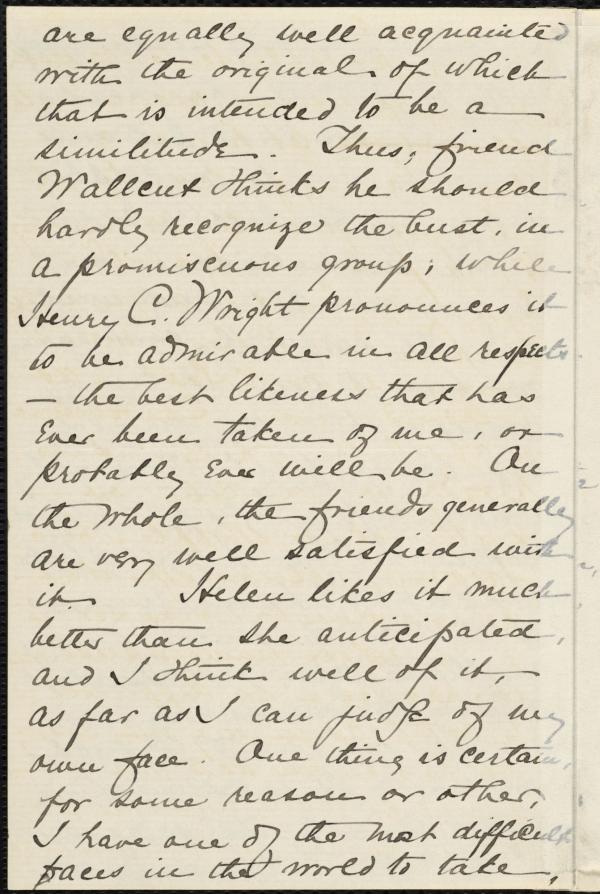 are equally well acquainted
with the original of which
that is intended to be a
similitude. Thus, friend
Wallcut thinks he should
hardly recognize the bust, in
a promiscuous group; while
Henry C. Wright pronounces it
to be admirable in all respects
— the best likeness that has
ever been taken of me, or
probably ever will be. On
the whole, the friends generally
are very well satisfied with
it. Helen likes it much
better than she anticipated,
and I think well of it,
as far as I can judge of my
own face. One thing is certain,
for some reason or other,
I have one of the most difficult
faces in the world to take,